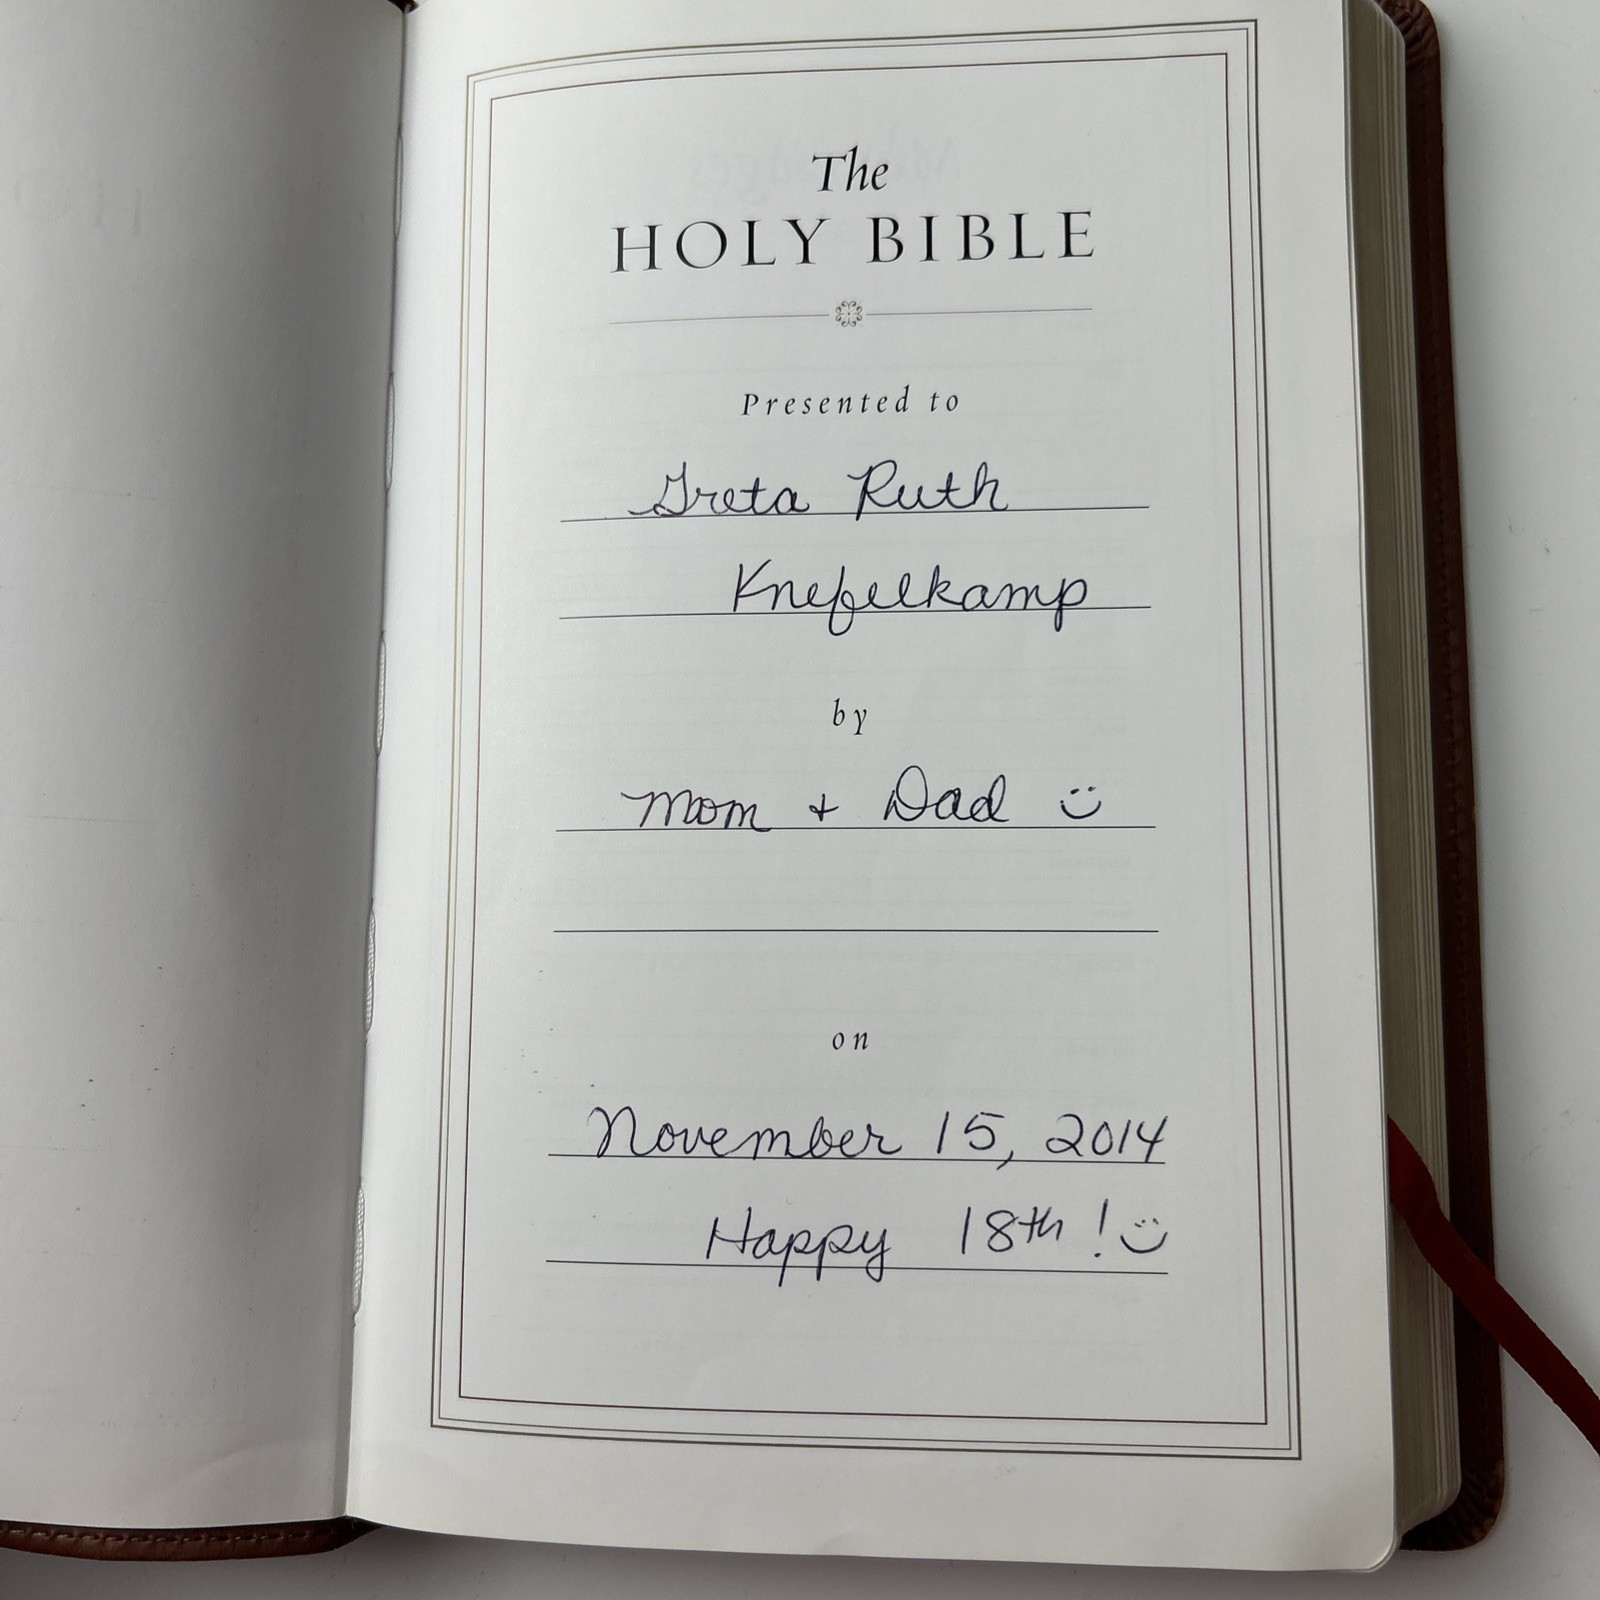 The
HOLY BIBLE
Presented to
Greta Ruth
Knefelkamp
by
Mom + Dad :)
on
November 15, 2014
Happy 18th ! :)